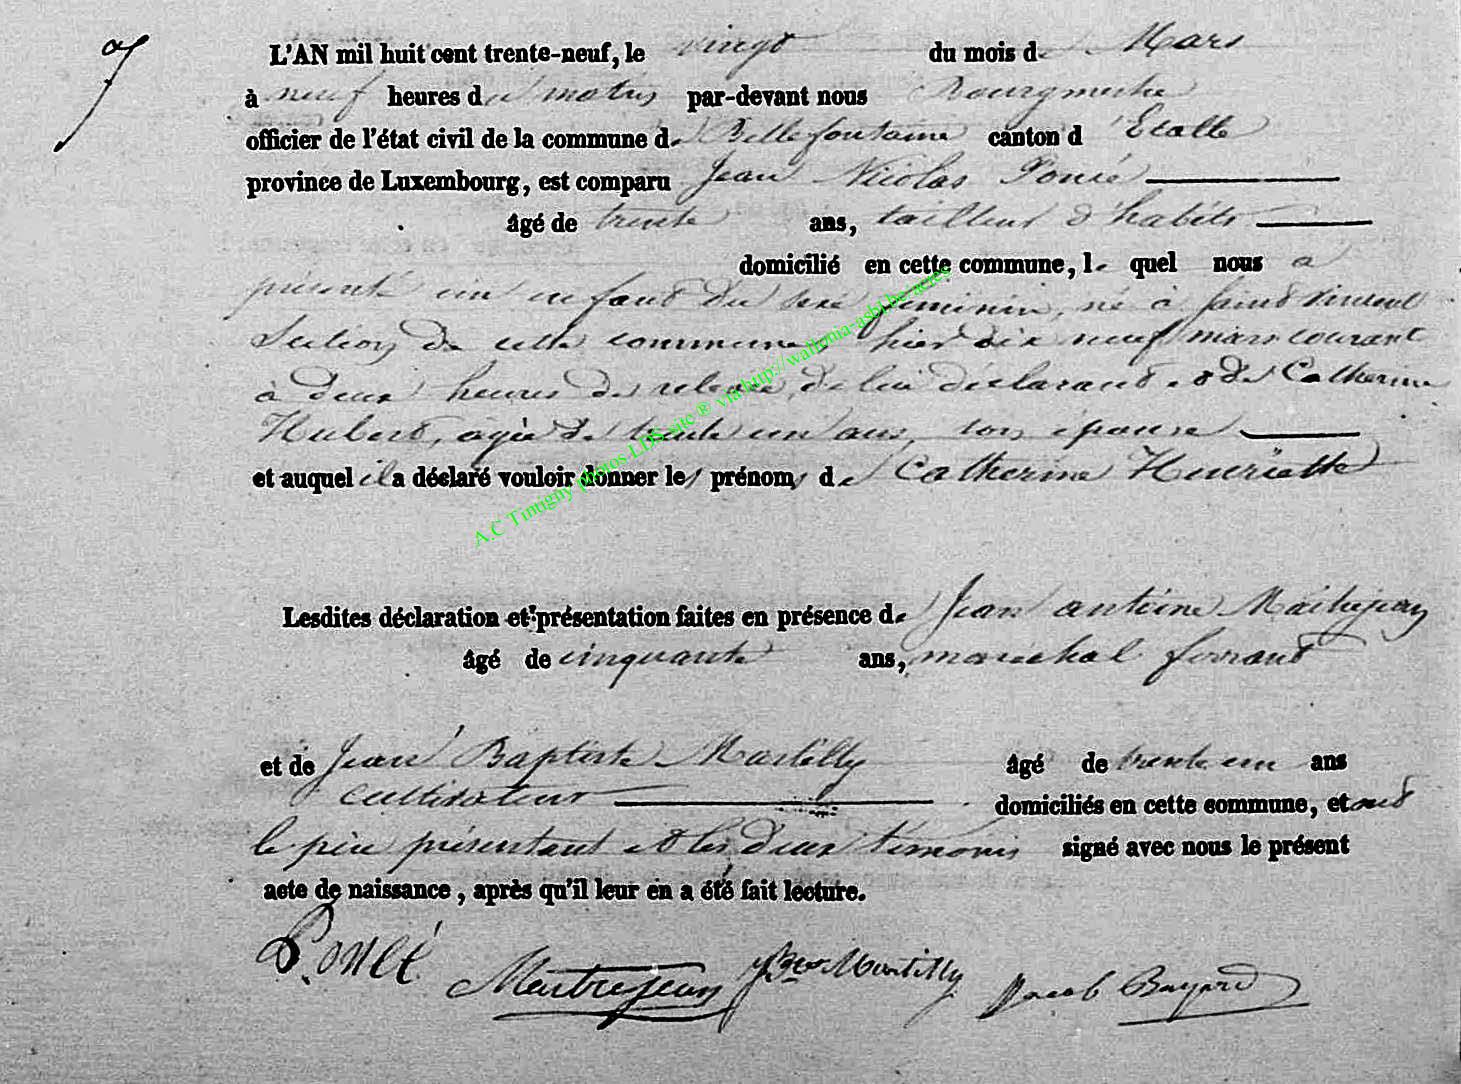 7
L'AN mil huit cent trente-neuf, le vingt du mois de Mars
à neuf heures du matin par-devant nous Bourgmestre
officier de l'état civil de la commune de Bellefontaine canton d Etalle
province de Luxembourg, est comparu Jean Nicolas Poncé
âgé de trente ans, tailleur d'habits
domicilié en cette commune, le quel nous a
présenté un enfant du sexe féminin, né à Saint Vincent
Section de cette commune, hier dix neuf mars courant
à deux heures de relevée, de lui déclarant et de Catherine
Hubert, agée de trente un ans, son épouse
et auquel il a déclaré vouloir donner les prénoms de Catherine Henriette
A.C Tintigny photos LDS site ® via http://wallonia-asbl.be actes
Lesdites déclaration et présentation faites en présence de Jean antoine Maitrejean
âgé de cinquante ans, marechal ferrant
et de Jean Baptiste Martilly âgé de trente un ans
cultivateur domiciliés en cette commune, et ont
le père présentant et les deux témoins signé avec nous le présent
acte de naissance, après qu'il leur en a été fait lecture.
Poncé Maitrejean JBte Martilly Jacob Bayard